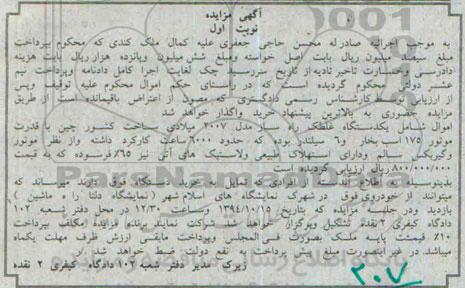 آگهی مزایده
نوبت اول
به موجب اجرائیه صادر له محسن حاجی جعفری علیه کمال ملک کندی که محکوم بپرداخت
مبلغ سیصد میلیون ریال بابت اصل خواسته ومبلغ شش میلیون وپانزده هزار ریال بابت هزینه
دادرسی وخسارت تاخیر تادیه از تاریخ سررسید چک لغایت اجرا کامل دادنامه وپرداخت نیم
عشر دولتی محکوم گردیده است که در راستای حکم اموال محکوم علیه توقیف وپس
از ارزیابی توسط کارشناس رسمی دادگستری که مصون از اعتراض باقیمانده است از طریق
مزایده حضوری به بالاترین پیشنهاد خرید واگذار خواهد شد
اموال شامل یکدستگاه غلطک راه مدل ۲۰۰۷ میلادی ساخت کشور چین با قدرت
موتور ۱۷۵ اسب بخار و۶ سیلندر بوده که حدود ۶۰۰۰ ساعت کارکرد داشته واز نظر موتور
وگیربکس سالم ودارای استهلاک طبیعی ولاستیک های آتی نیز ۶۵٪ فرسوده که به قیمت
۸۰۰/۰۰۰/۰۰۰ ریال ارزیابی گردیده است
بدینوسیله به اطلاع افراد یا افرادی که تمایل به خرید دستگاه فوق دارند میرساند که
میتوانند از خودروی فوق در شهرک نمایشگاه های اسلام شهر (نمایشگاه دلتا راه ماشین)
بازدید ودر جلسه مزایده که بتاریخ ۱۳۹۴/۱۰/۱۵ وساعت ۱۲/۳۰ در محل دفتر شعبه ۱۰۲
دادگاه کیفری ۲ نقده تشکیل وبرگزار خواهد شد شرکت نمایند برنده مزایده مکلف بپرداخت
۱۰٪ قیمت پایه بصورت فی المجلس وپرداخت مابقی ارزش ظرف مهلت یکماه
میباشد. در غیر اینصورت مبلغ پیش پرداخت به نفع دولت ضبط خواهد شد
زیرک مدیر دفتر شعبه ۱۰۲ دادگاه کیفری ۲ نقده
۳۰۷
ParsNamadData